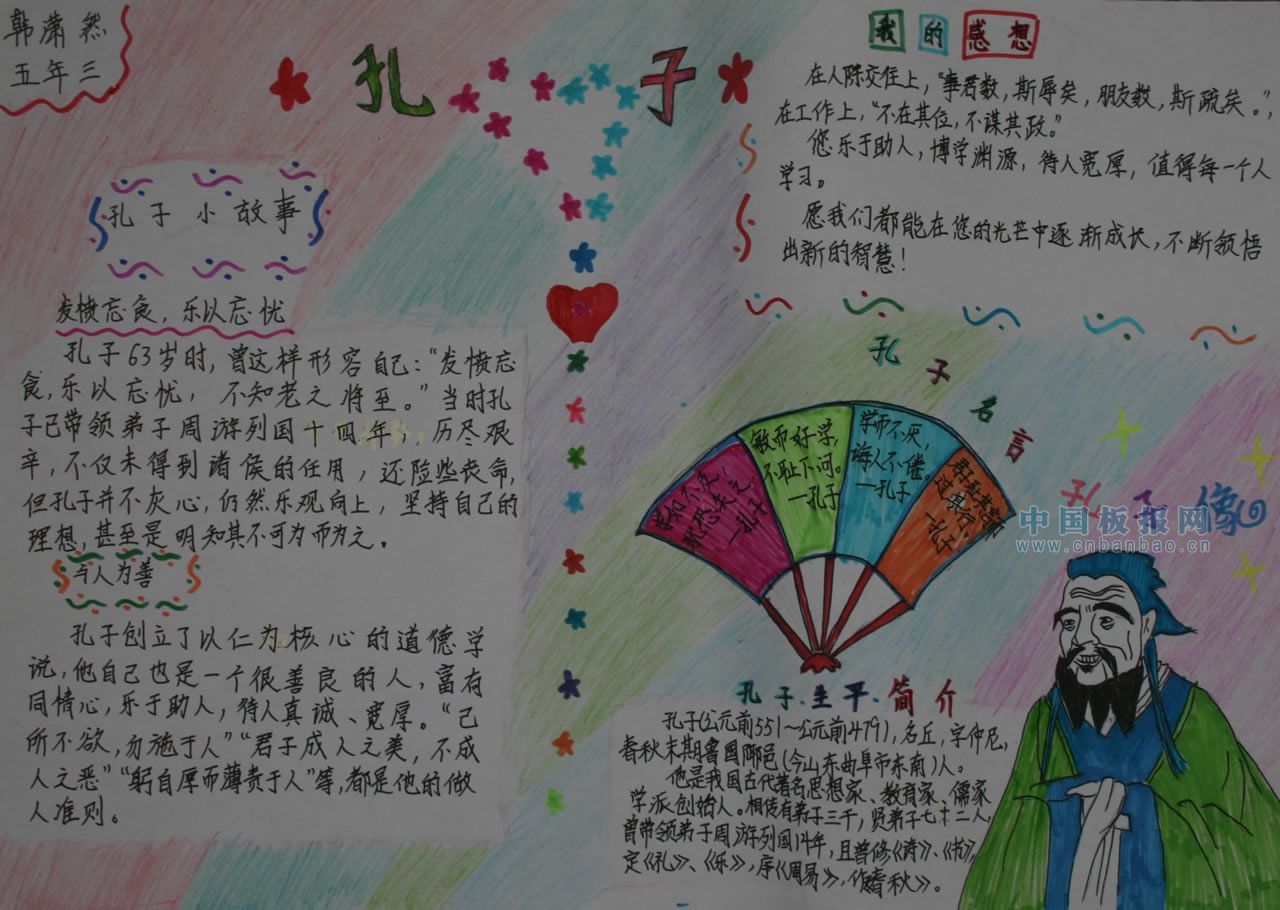 韩潇然
五年三
孔子
孔子小故事
发愤忘食，乐以忘忧
孔子63岁时，曾这样形容自己：“发愤忘
食，乐以忘忧，不知老之将至。”当时孔
子已带领弟子周游列国十四年，历尽艰
辛，不仅未得到诸侯的任用，还险些丧命，
但孔子并不灰心，仍然乐观向上，坚持自己的
理想，甚至是明知其不可为而为之。
与人为善
孔子创立了以仁为核心的道德学
说，他自己也是一个很善良的人，富有
同情心，乐于助人，待人真诚、宽厚。“己
所不欲，勿施于人”“君子成人之美，不成
人之恶”“躬自厚而薄责于人”等，都是他的做
人准则。
我的感想
在人际交往上，“事君数，斯辱矣，朋友数，斯疏矣。”，
在工作上，“不在其位，不谋其政。”
您乐于助人，博学渊源，待人宽厚，值得每一个人
学习。
愿我们都能在您的光芒中逐渐成长，不断领悟
出新的智慧！
孔子名言
学如不及，
犹恐失之
—孔子
敏而好学，
不耻下问。
—孔子
学而不厌，
诲人不倦。
—孔子
君子耻其言而
过其行。
—孔子
孔子像
中国板报网
www.cnbanbao.cn
孔子生平简介
孔子(公元前551～公元前479)，名丘，字仲尼，
春秋末期鲁国陬邑(今山东曲阜市东南)人。
他是我国古代著名思想家、教育家、儒家
学派创始人。相传有弟子三千，贤弟子七十二人
曾带领弟子周游列国14年，且曾修《诗》、《书》，
定《礼》、《乐》，序《周易》，作《春秋》。